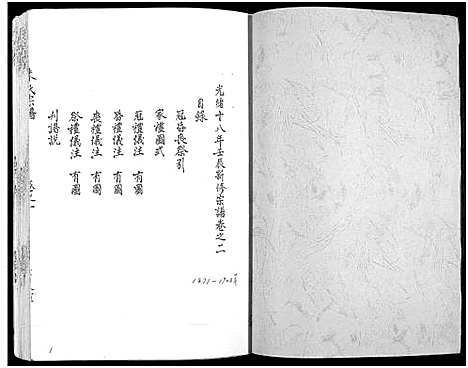 光緒十八年壬辰新修宗譜卷之二
目錄
冠昏喪祭引
家禮圖式
冠禮儀注 有圖
昏禮儀注 有圖
喪禮儀注 有圖
祭禮儀注 有圖
刋譜説
1